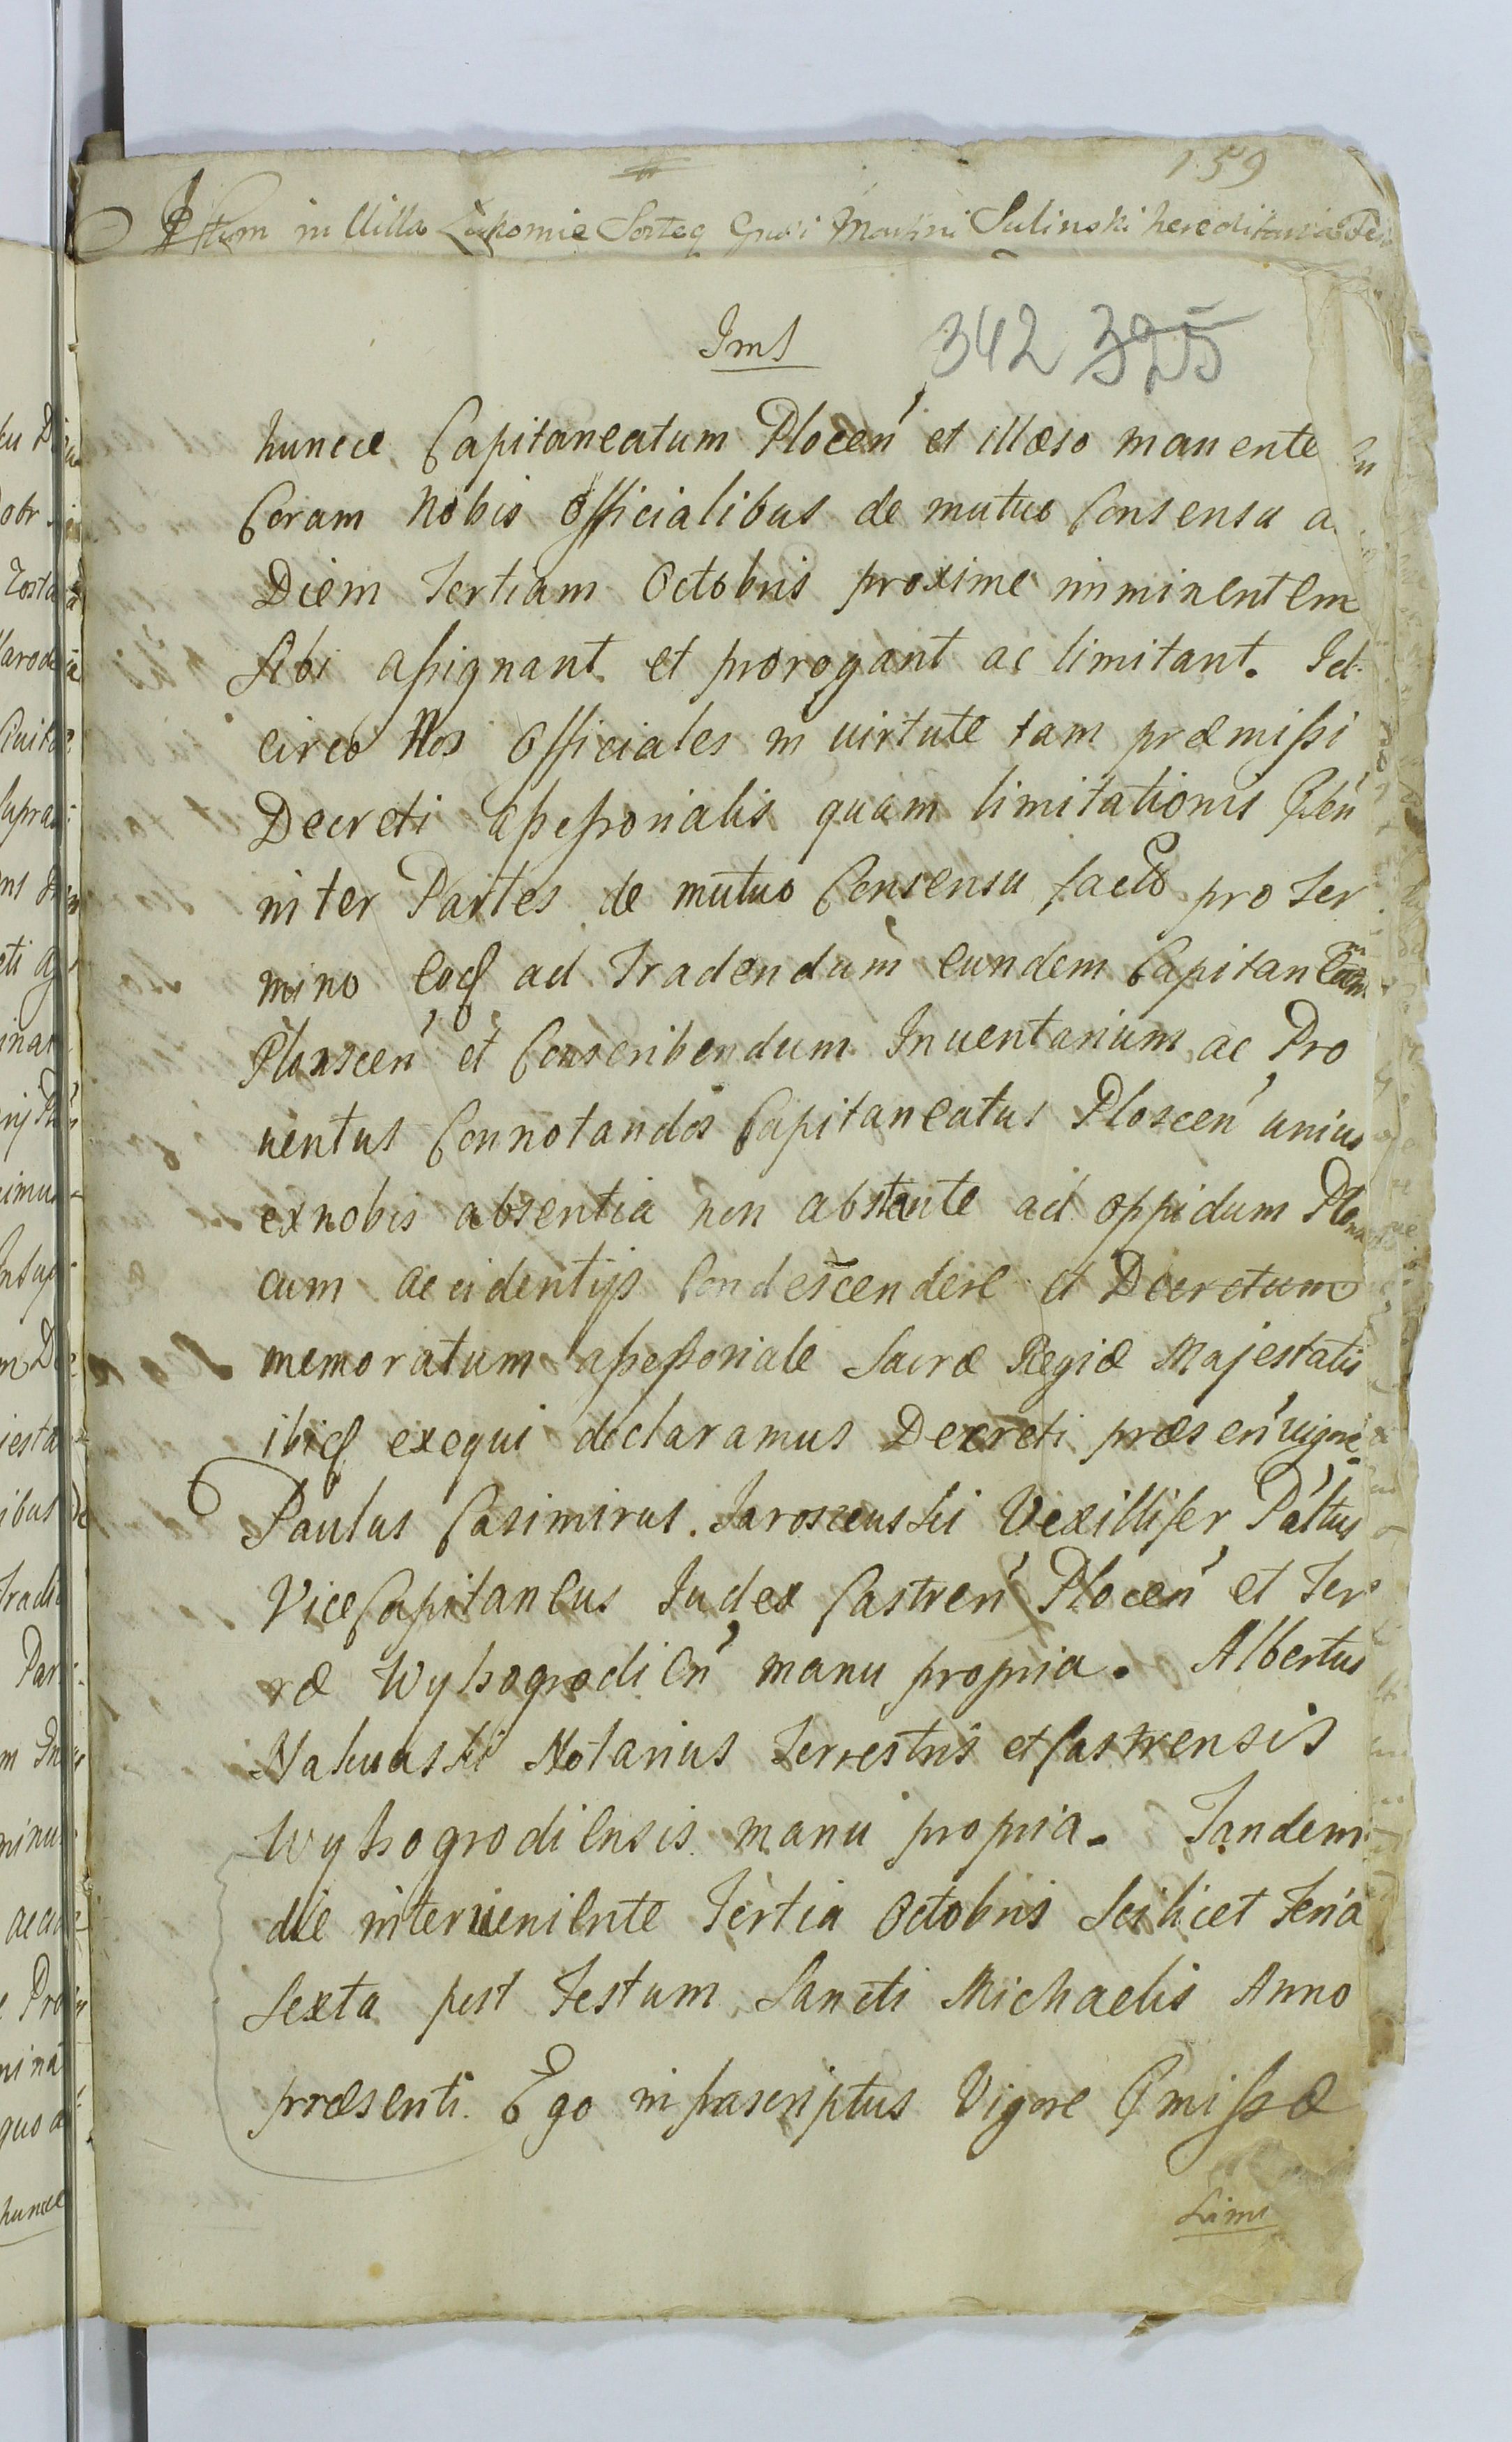 159
Actum in Villa Łukomie Sorteq Gnosi Martini Sulinski hereditaria
Ims
342 325
huncce Capitaneatum Plocen̛ et illæso manente
Coram Nobis Officialibus de mutuo Consensu a
Diem Tertiam Octobris proxime imminentem
Sibi aßignant et prorogant ac limitant. Id
circo Nos Officiales in uirtute tam præmißi
Decreti aßeßorialis quam limitationis
inter Partes de mutuo Consensu facto pro Ter
mino eoq ad Tradendum eundem Capitaneatum
et Conscribendum Inuentarium ac Pro
uentus Connotandos Capitaneatus Ploscen̛ unius
exnobis absentia non abstante ad oppidum
cum accidentijs Condescendere et Decretum
memoratum aßeßoriale Sacræ Regiæ Majestatis
ibiq exequi declaramus Decreti præsen̛ uigore
Paulus Casimirus Jaroszeuski Vexillifer Pałtus
ViceCapitaneus Judex Castren̛ Plocen̛ et Ter
ræ Wyßogrodien̛ manu propria. Albertus
Nakuaski Notarius Terrestris et Castrensis
Wyßogrodiensis manu propria. Tandem
die interueniente Tertia Octobris Scilicet Feria
Sexta post Festum Sancti Michaelis Anno
præsenti. Ego infrascriptus Vigore
Lims